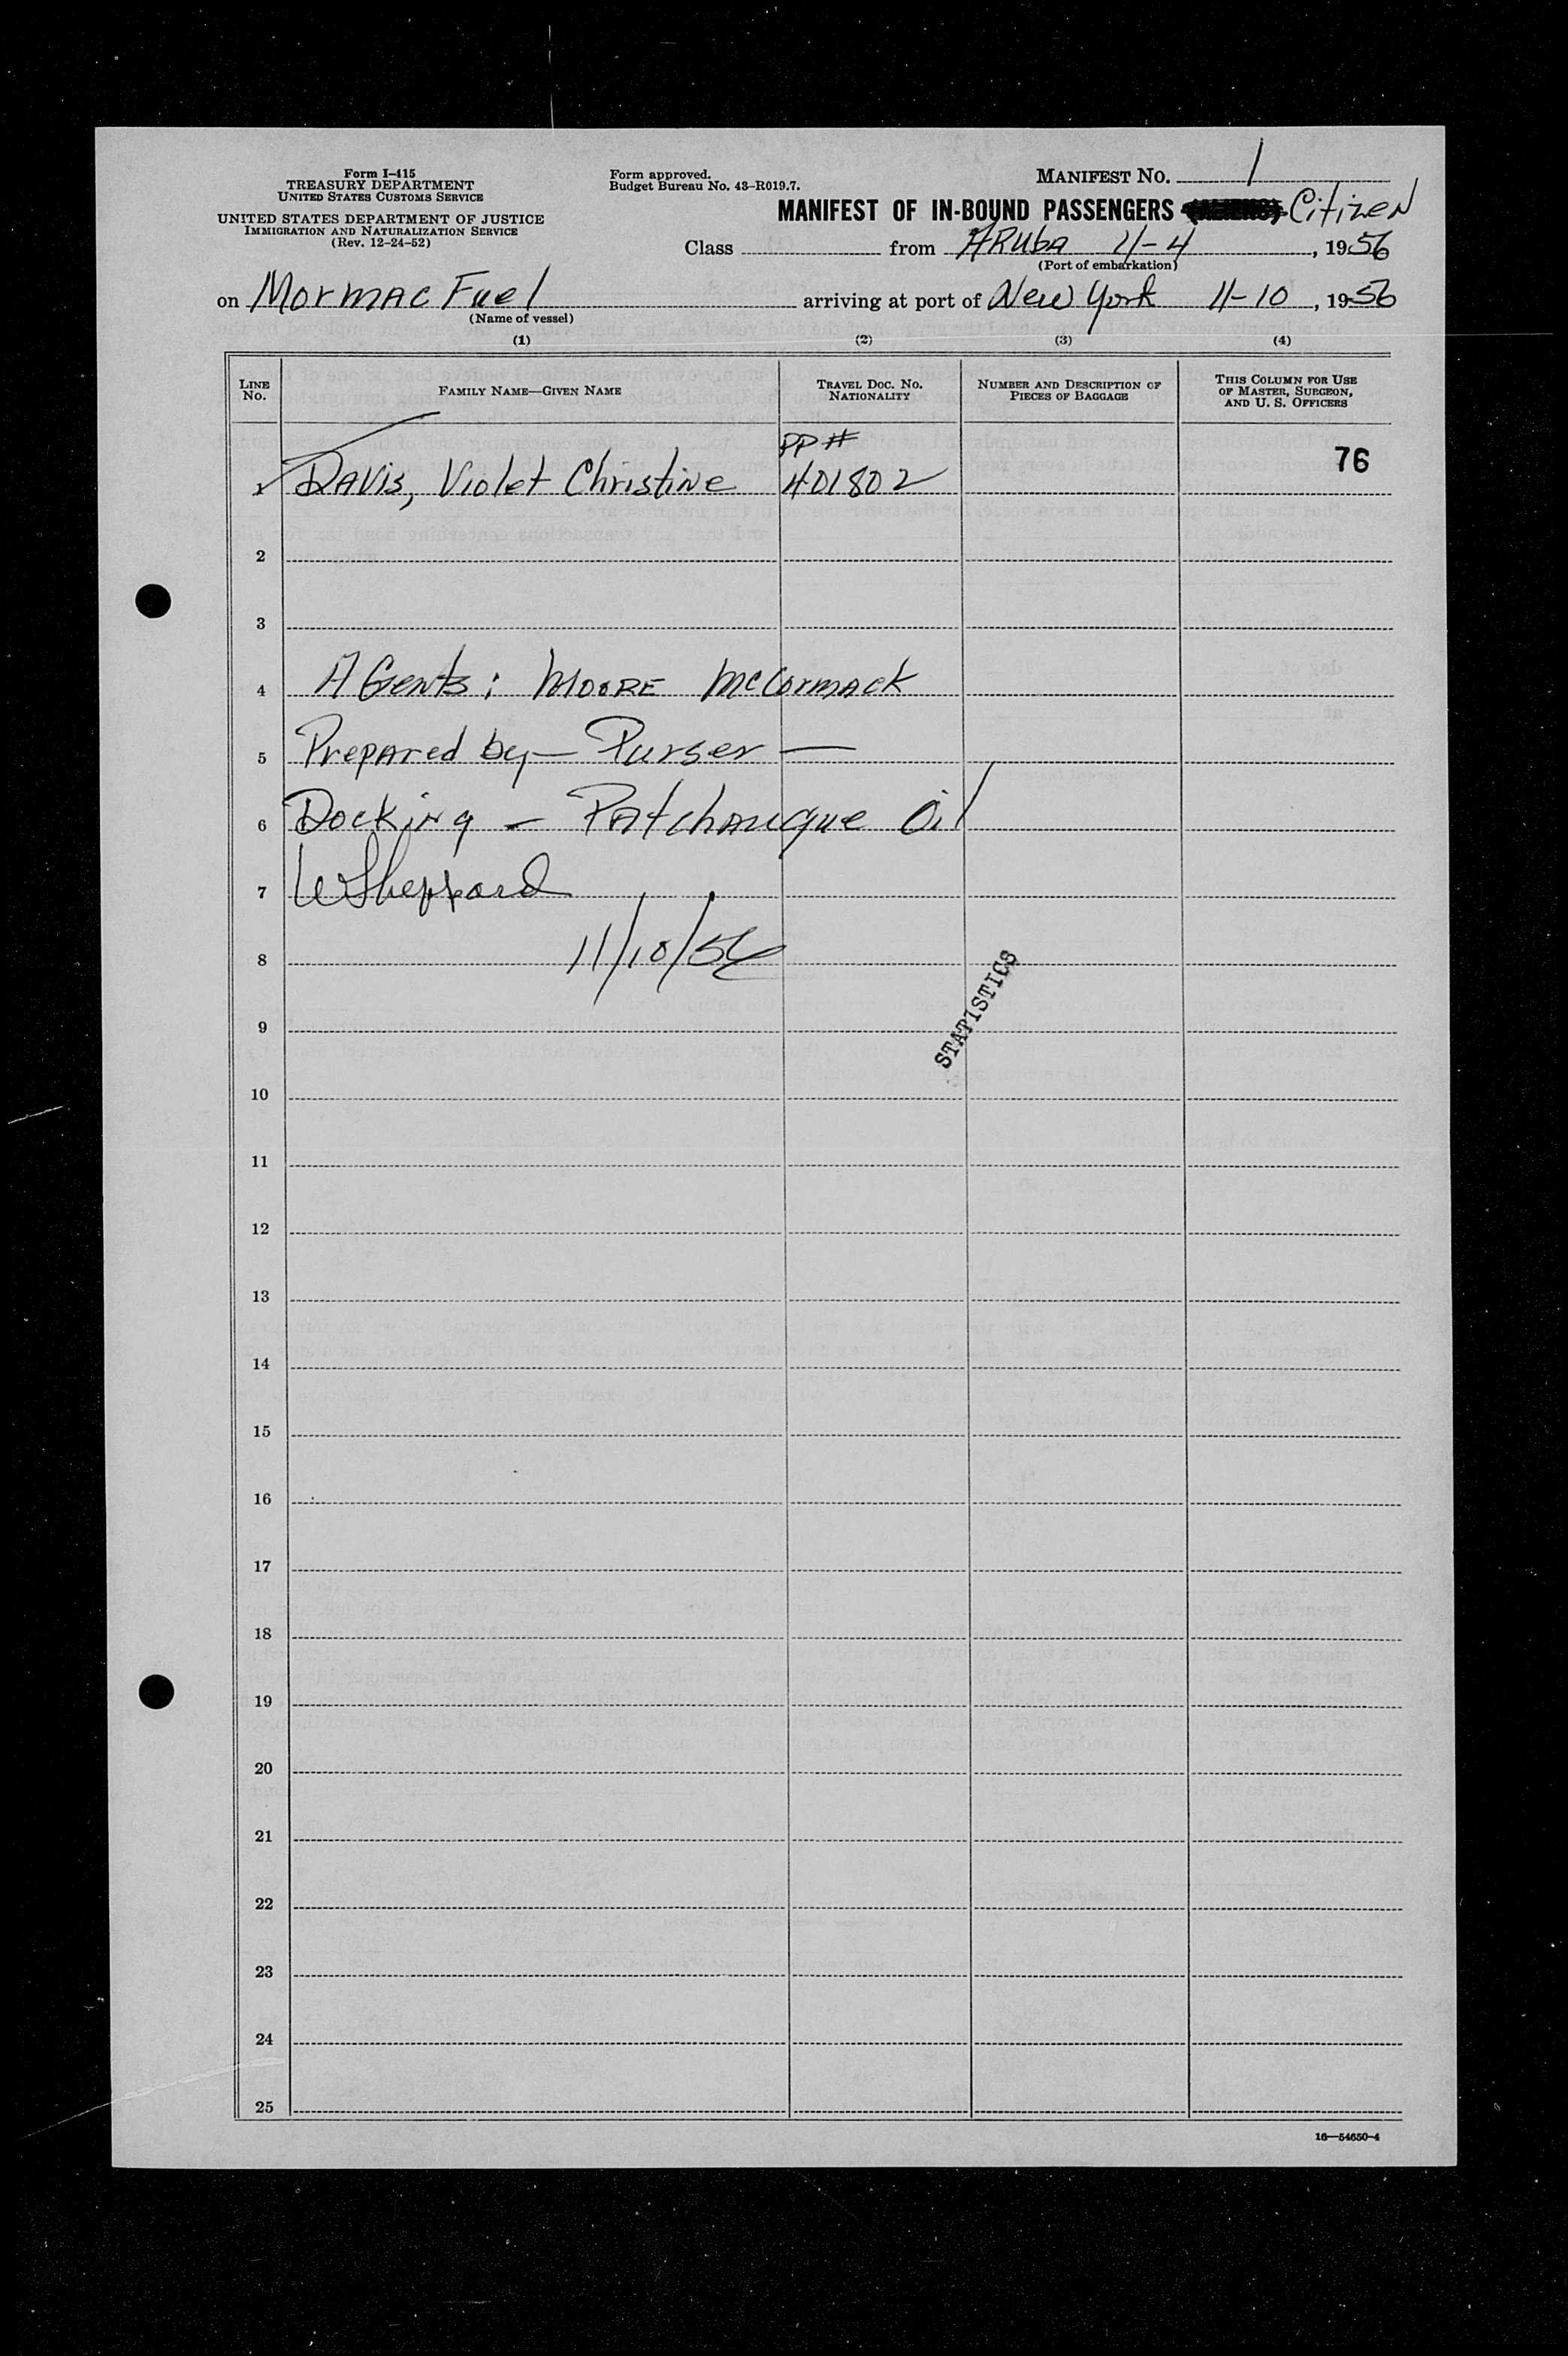 Form I-415
TREASURY DEPARTMENT
UNITED STATES CUSTOMS SERVICE
UNITED STATES DEPARTMENT OF JUSTICE
IMMIGRATION AND NATURALIZATION SERVICE
(Rev. 12-24-52)
Form approved.
Budget Bureau No. 43-R019.7.
MANIFEST NO. 1
MANIFEST OF IN-BOUND PASSENGERS Citizen
Class from Aruba 11-4, 1956
(Port of embarkation)
on Mormac Fuel arriving at port of New York 11-10, 1956
(Name of vessel)
(1) (2) (3) (4)
LINE NO. FAMILY NAME—GIVEN NAME TRAVEL DOC. NO. NATIONALITY NUMBER AND DESCRIPTION OF PIECES OF BAGGAGE THIS COLUMN FOR USE OF MASTER, SURGEON, AND U. S. OFFICERS
PP#
Davis, Violet Christine 401802 76
2
3
4 Agents: Moore McCormack
5 Prepared by — Purser —
6 Docking — Patchaugue Oil
7 W Sheppard
8 11/10/56
STATISTICS
9
10
11
12
13
14
15
16
17
18
19
20
21
22
23
24
25
16—54650-4